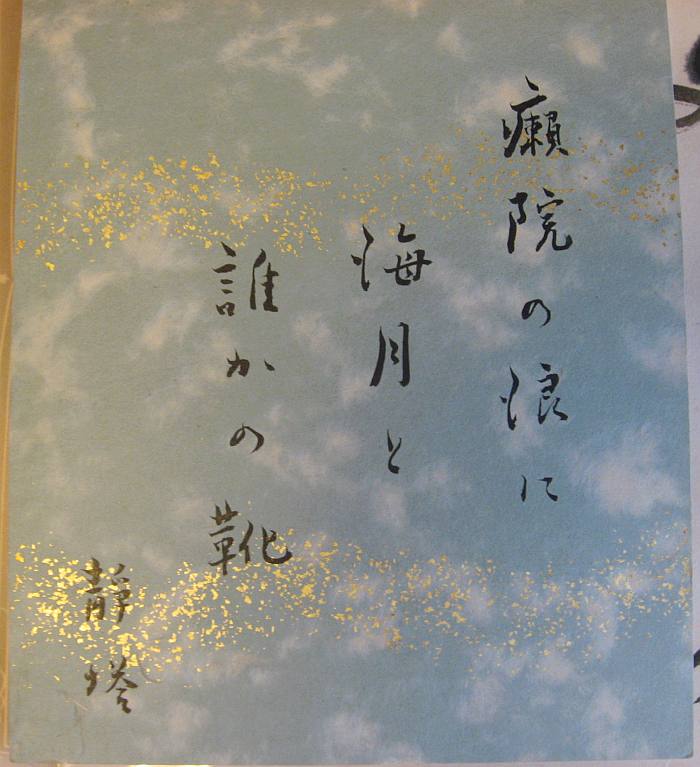 癩院の浪に
海月と
誰かの靴
靜塔